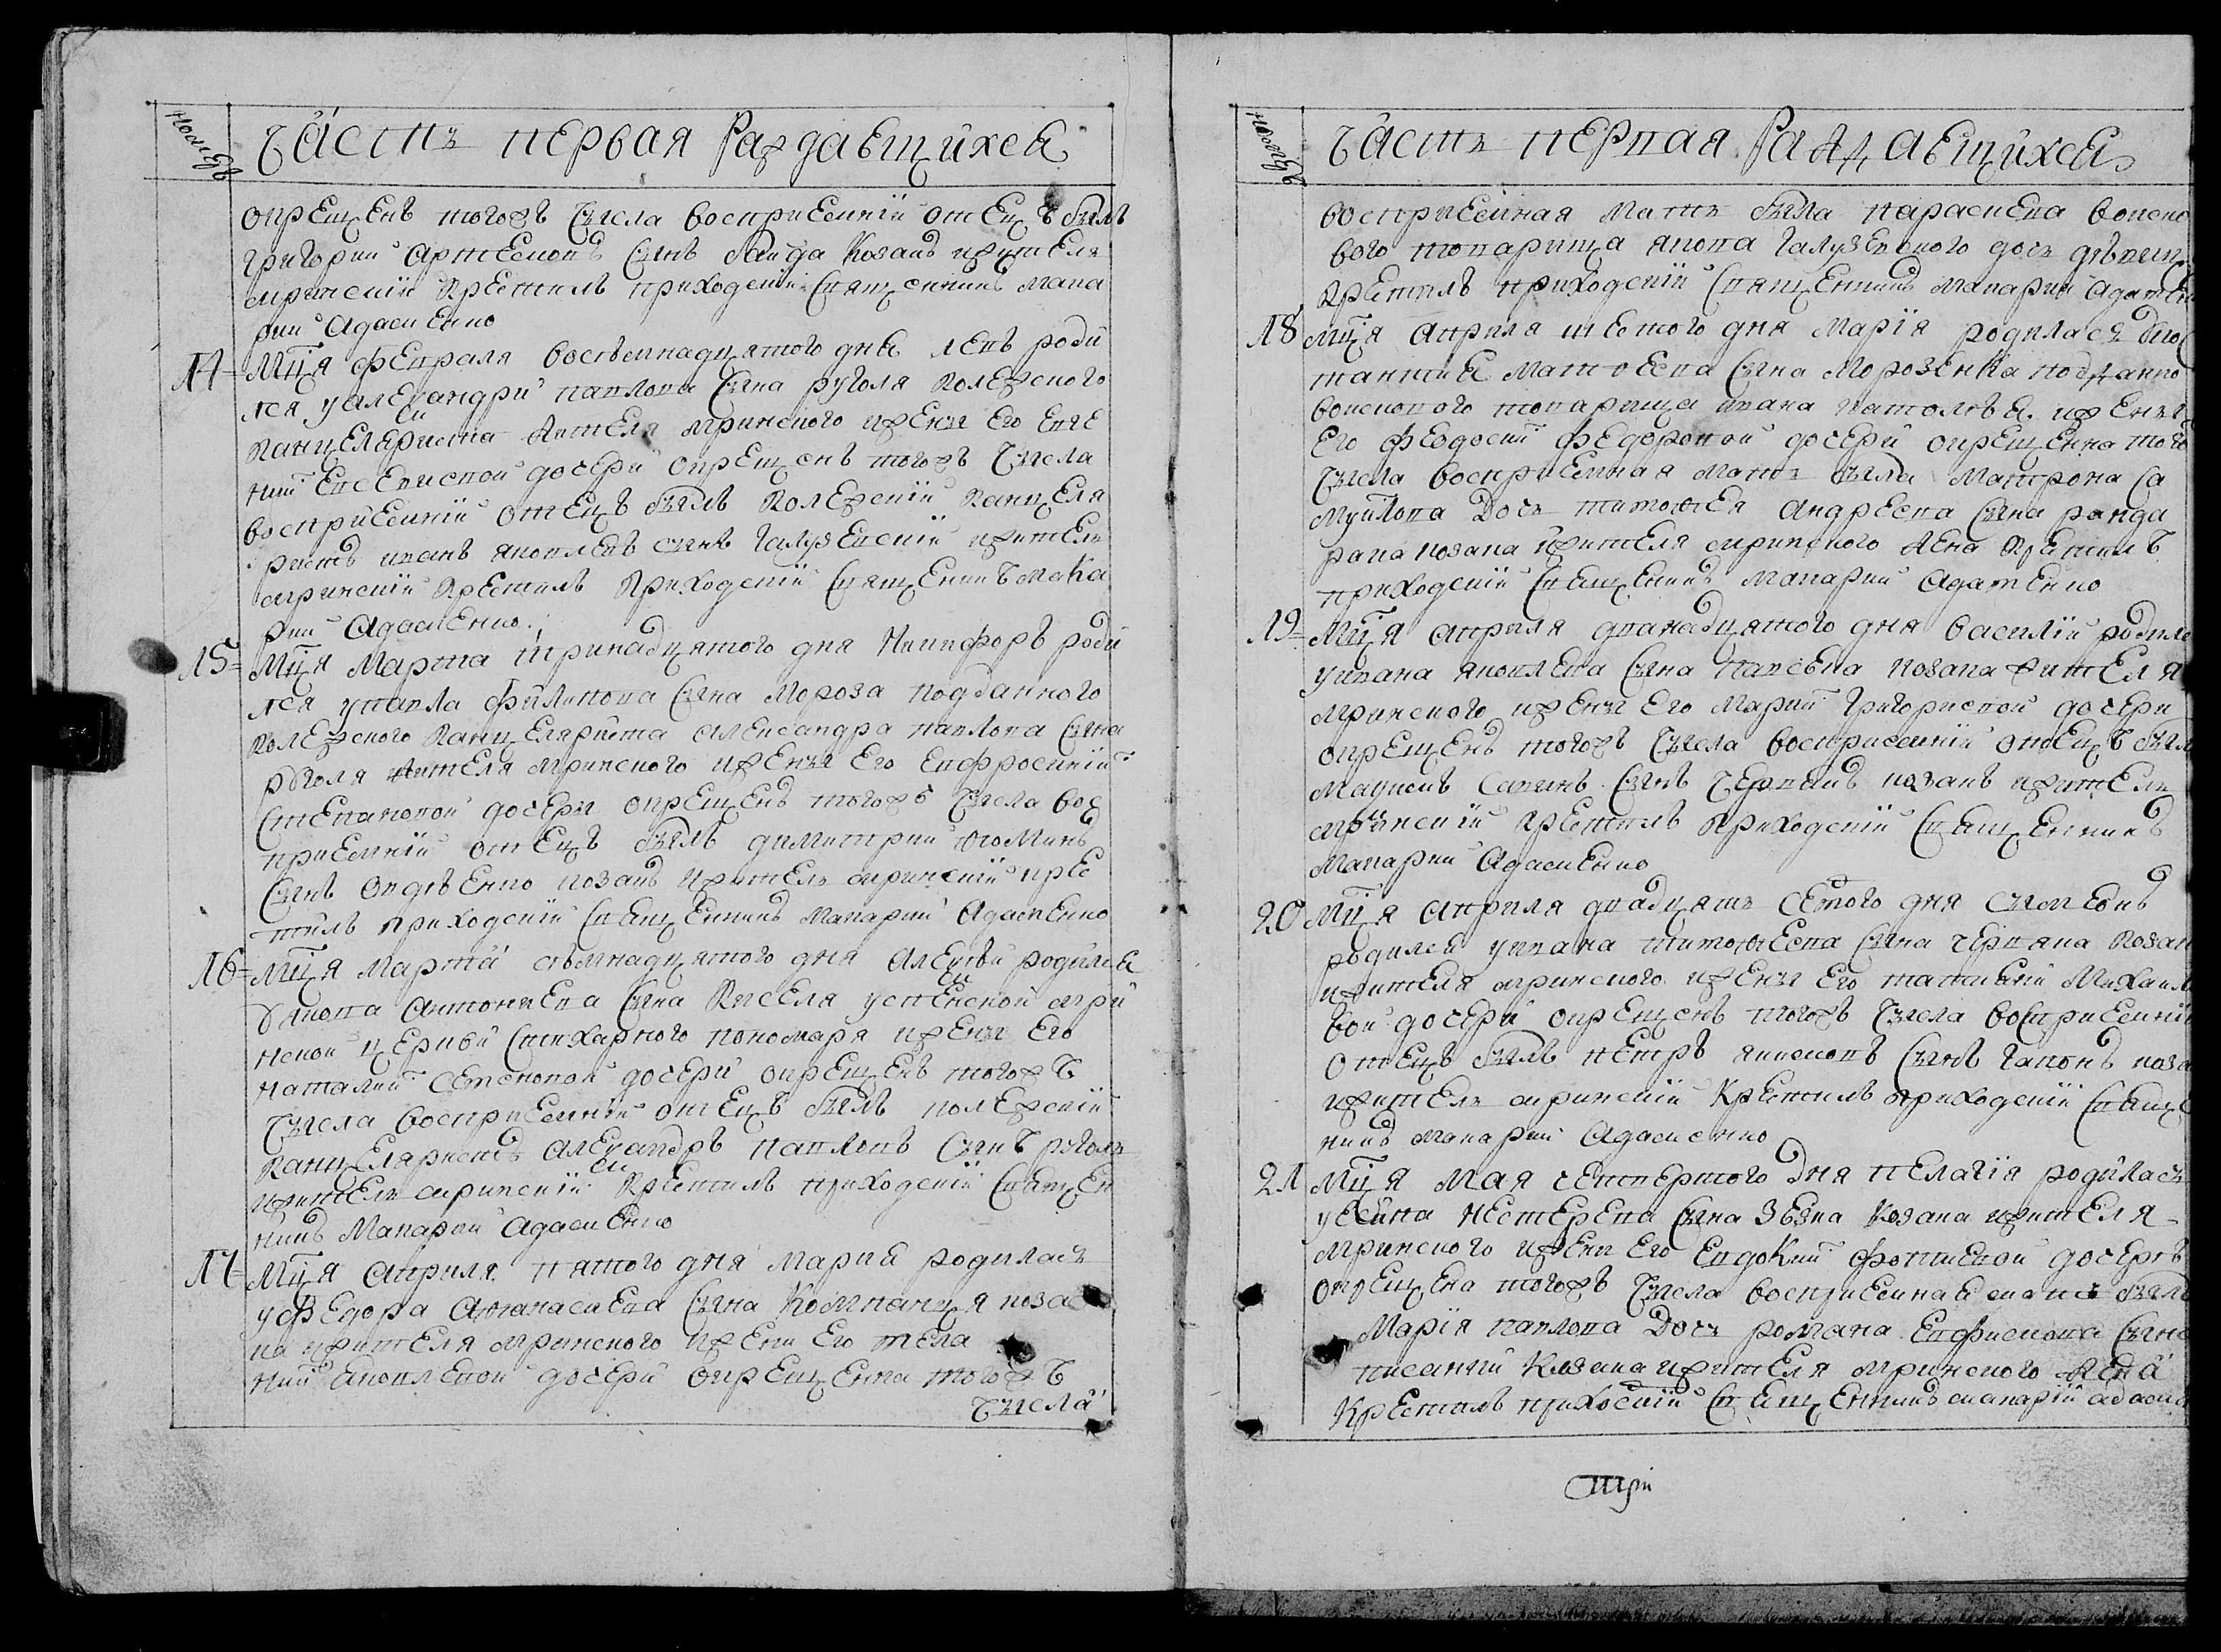 часть первая Раждаещихся
окрещенъ тогожъ числа восприемній отецъ былъ
григорий артемовъ сынъ Гайда Козакъ житель
мринский крестилъ приходский священникъ Мака
рий Адаменко
14 Мця февраля восемнадцятого дня левъ роди
лся у александри павлова сына руголя колежского
канцеляриста жителя мринского жены его евге
нии евсевиевой дочери окрещенъ тогожъ числа
восприемній отецъ былъ колежский канцеля
ристъ иванъ яковлевъ сынъ Галузевский житель
мринский крестилъ приходский священникъ Мака
рий Адаменко
15 Мця Марта тринадцятого дня Никифоръ роди
лся у павла филипова сына Мороза подданного
колежского канцеляриста александра павлова сына
руголя жителя мринского жены его ефросинии
степановой дочери окрещенъ тогожъ числа вос
приемній отецъ былъ димитрий фоминъ
сынъ козакъ житель мринский кре
стилъ приходский священникъ макарий Адаменко
16 Мця Марта семнадцятого дня Алексей родился
у якова Антониева сына Киселя успенской мри
нской церкви стихарного пономаря жены его
наталии семеновой дочери окрещенъ тогожъ
числа восприемній отецъ былъ колежский
канцеляристъ александръ павловъ сынъ руголь
житель мринский крестилъ приходский священ
никъ Макарий Адаменко
17 Мця Априля пятого дня мария родилась
у федора Афанасиева сына Компанця коза
ка жителя мринского жени его мела
нии яковлевой дочери окрещенна тогожъ
числа
часть первая Раждаещихся
восприемная мать была параскева войско
вого товарища якова Галузевского дочь девица
крестилъ приходский священникъ макарий Адамен
18 Мця априля шестого дня Мария родилась
Матфеева сына Морозенка подданно
войскового товарища ивана жены
его феодосии федоровой дочери окрещенна того
числа восприемная мать была Матрона са
муйлова дочь тимофея андреева сына
козака жителя мринского жена крестилъ
приходский священникъ макарий Адаменко
19 Мця априля дванадцятого дня василий родилс
у ивана яковлева сына козака жителя
мринского жены его марии григориевой дочери
окрещенъ тогожъ числа восприемній отецъ был
савинъ сынъ козакъ житель
мринский крестилъ приходский священникъ
макарий Адаменко
20 Мця априля двадцять семого дня сымеонъ
родился у ивана тимофеева сына червяка козак
жителя мринского жены его татиани Михаил
вой дочери окрещенъ тогожъ числа восприемний
отецъ былъ петръ якимовъ сынъ гапонъ коза
житель мринский крестилъ приходский священ
никъ макарий Адаменко
21 Мця мая четвертого дня пелагия родилась
у нестерева сына козака жителя
мринского жени его евдокии фокиевой дочеръ
окрещена тогожъ числа восприемная мать была
Мария павлова дочь романа сына
козака жителя мринского жена
крестилъ приходский священникъ макарий адам
три